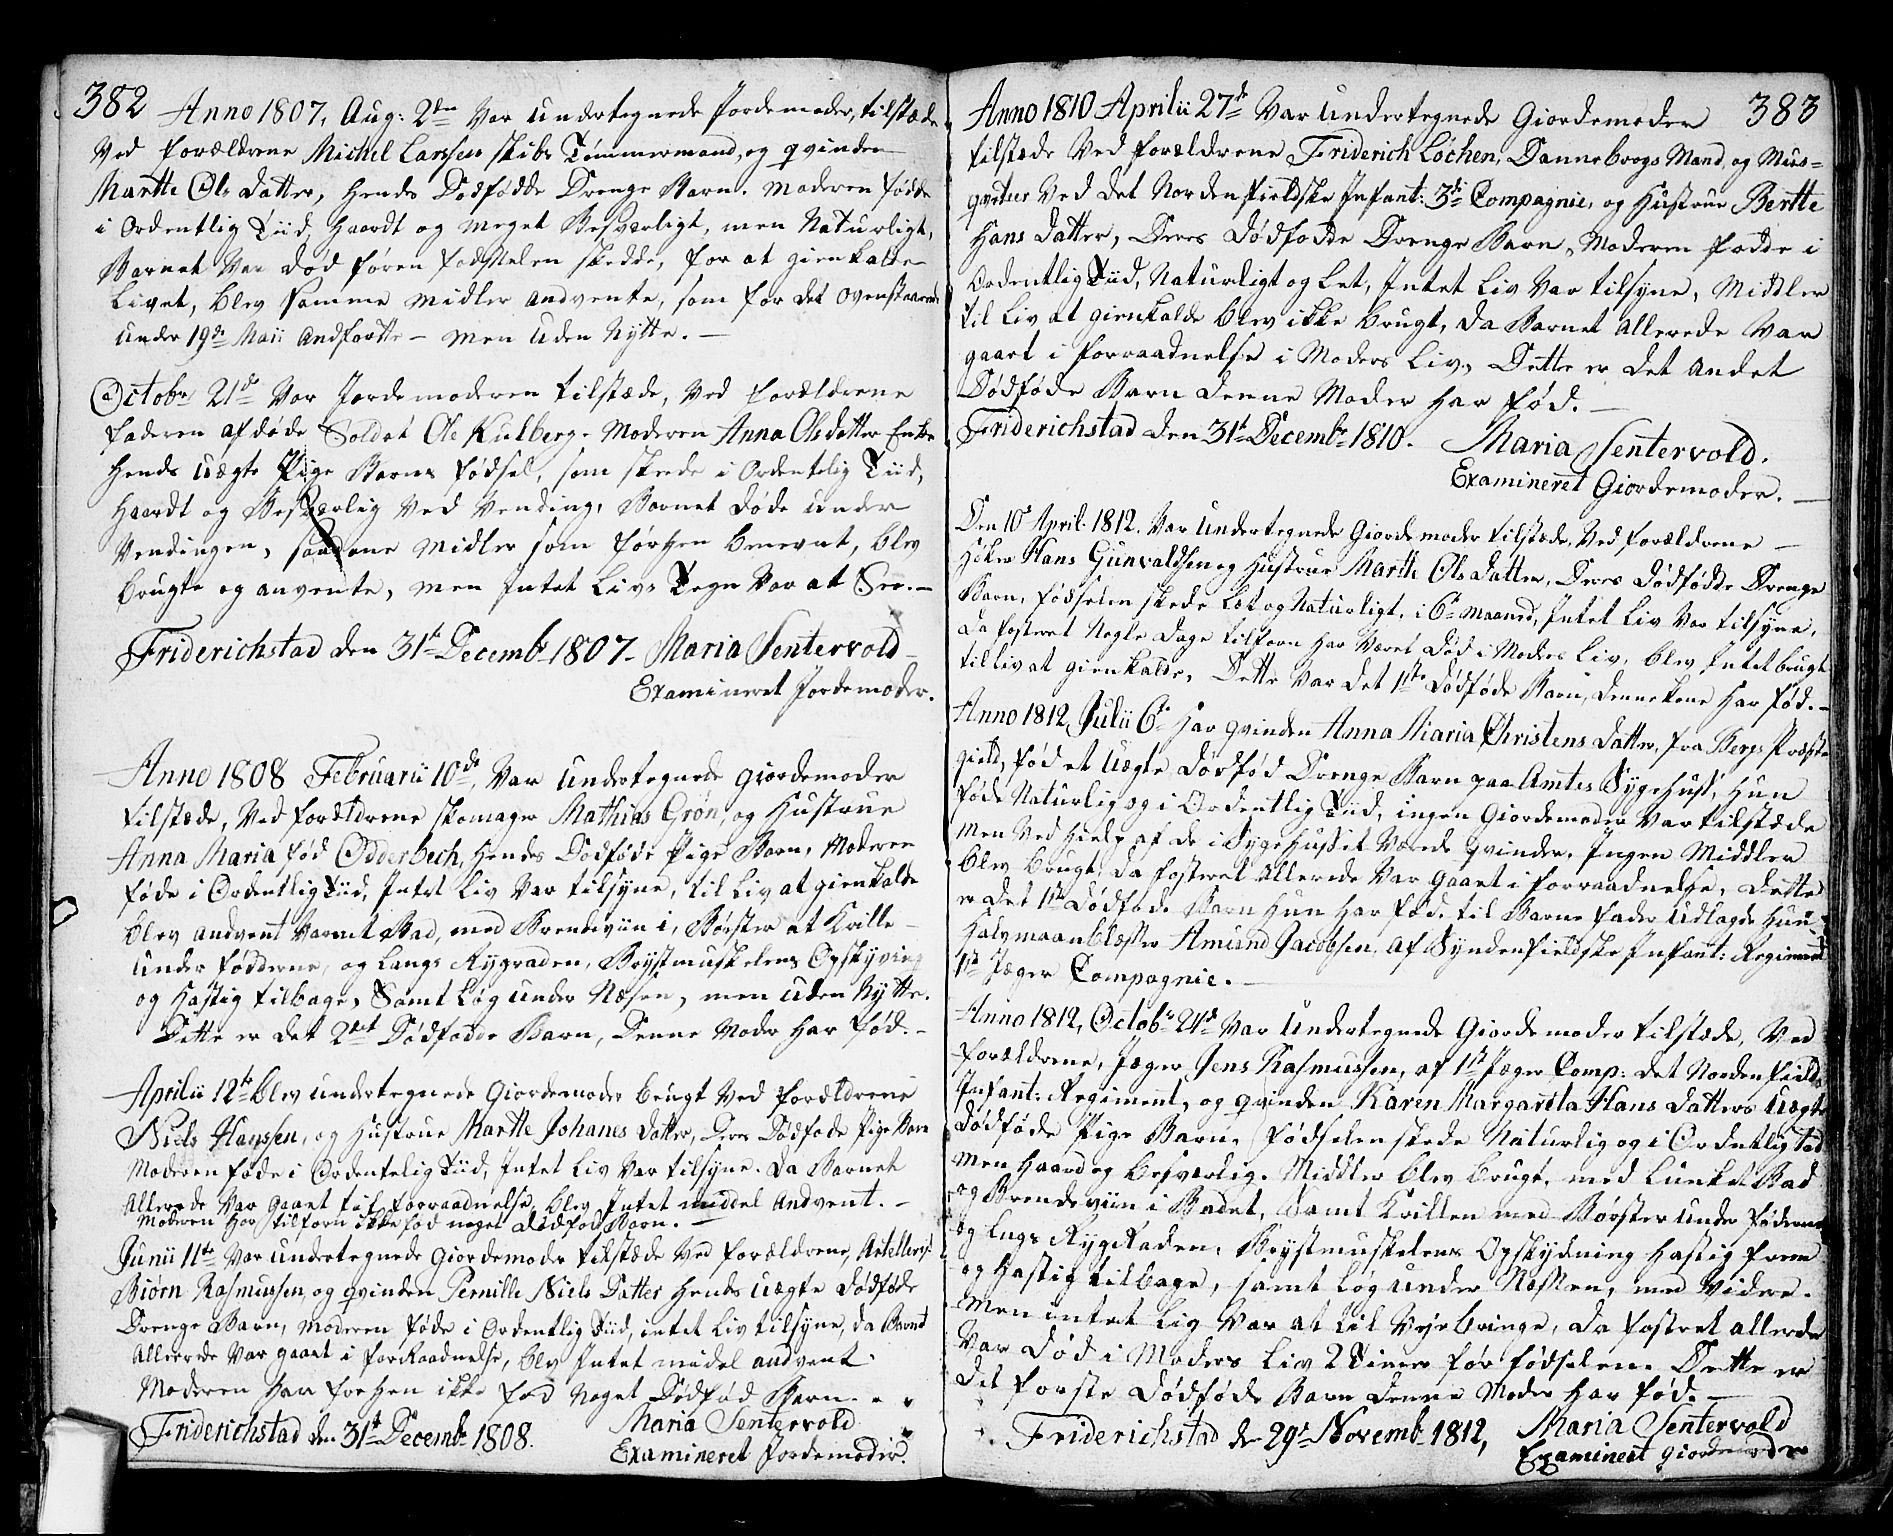 382
Anno 1807, Aug: 2den Var undertegnede Jordemoder, tilstæde
Ved forældrene Michel Larssen skibs Tømmermand, og qvinden
Marthe Ols Datter, hendes Dødfødde Drenge Barn. Moderen fødde
i ordentlig Tiid, haardt og meget besværligt, men Naturligt,
Barnet Var død føren fødselen skedde, for at gienkalde
Livet, blev samme midler andvente, som for det ovenstaaende
under 19de Maii andførtte – men uden Nytte. –
Octobr 21de Var Jordemoderen tilstæde, Ved forældrene
faderen afdøde Soldat Ole Kulberg. Moderen Anna Olsdatter Enke
hends uægte Pige Barns fødsel, som skede i ordentelig Tiid,
haardt og besværlig ved Vending, Barnet døde under
Vendingen, saadane midler som førhen benevnt, blev
brugte og anvente, men Intet Livs Tegn Var at See. –
Friderichstad den 31te Decembr 1807. Maria Sentervold
Examineret Jordemoder.
Anno 1808 Februarii 10de, Var undertegnede giordemoder
tilstæde, Ved forældrene skomager Mathias Grøn, og Hustrue
Anna Maria fød Odderbech, hendes Dødføde Pige Barn, Moderen
føde i Ordentlig Tiid, Intet Liv Var tilsyne, til Liv at gienkalde
blev andvent Varmt Bad, med Brendeviin i, Børster at Krille
under fødderne, og langs Rygraden, Brystmuskelens Opskyving
og hastig tilbage, Samt Løg under Næsen, men uden Nytte.
Dette er det 2det Dødfødde Barn, Denne Moder har fød. –
Aprilii 12te blev undertegnede Giordemoder brugt Ved forældrene
Niels Hanssen, og Hustrue Marthe Johanes Datter, Deres Dødføde Pige Barn
Moderen føde i Ordentelig Tiid, Intet Liv Var tilsyne. Da Barnet
allerede Var gaaet til forraadnelse, blev Intet middel andvent. –
Moderen har tilforn ikke fød noget dødfød Barn. –
Junii 11te Var undertegnede Giordemoder tilstæde Ved forældrene, Artellerist
Biørn Rasmussen, og qvinden Pernille Niels Datter hends uægte dødføde
Drenge Barn, Moderen føde i Ordentlig Tiid, intet Liv tilsyne, da Barnet
allerede Var gaaet i forraadnelse, blev Intet midel andvent.
Moderen har forhen ikke fød Noget Dødfød Barn.
Friderichstad den 31te Decembr 1808. Maria Sentervold
Examineret Jordemoder.
383
Anno 1810 Aprilii 27de Var undertegnede Giordemoder
tilstæde Ved forældrene Friderich Løchen, Dannebrogs Mand, og Mus-
qvteer Ved det Nordenfieldske Infant: 3de Compagnie, og Hustrue Berthe
Hans Datter, Deres dødfødde Drenge Barn, Moderen fødde i
Ordentlig Tiid, Naturligt og let, Intet Liv Var tilsyne, Middler
til Liv at gienkalde blev ikke brugt, da Barnet allerede Var
gaaet i forraadnelse i Moders Liv. Dette er det andet
Dødføde Barn denne Moder har fød. –
Friderichstad den 31te Decembr 1810. Maria Sentervold.
Examineret Giordemoder. –
Den 10de April 1812. Var undertegnede Giordemoder tilstæde, Ved forældrene –
Høker Hans Gunvaldsen og Hustrue Marthe Ols Datter, Deres Dødfødde Drenge
Barn, fødselen skede let og Naturligt, i 6te maaned, Intet Liv Var tilsyne,
da fosteret Nogle dage tilforn har Været død i Moders Liv, blev Intet brugt
til Liv at gienkalde. Dette Var det 1ste dødføde Barn, denne kone har fød. –
Anno 1812, Julii 6te har qvinden Anna Maria Christens Datter, fra Bergs Præste
gield, fød et uægte Dødfød Drenge Barn paa Amtes Sygehuss, Hun
føde Naturlig og i Ordentlig Tiid, ingen Giordemoder Var tilstæde
men Ved hielp af de i Sygehusset Værende qvinder. Ingen Middler
blev brugt, da fosteret allerede Var gaaet i forraadnelse, dette
er det 1ste Dødføde Barn hun har fød. til Barne fader udlagde hun
Halvmaanblæsser Amund Jacobsen, af Syndenfieldske Infant: Regiment
1ste Jæger Compagnie. –
Anno 1812, Octobr 21de Var undertegnede Giordemoder tilstæde, Ved
forældrene, Jæger Jens Rasmussen, af 1ste Jæger Comp: det Nordenfields
Infant: Regiment, og qvinden Karen Margaretha Hans Datters uægte
dødføde Pige Barn, fødselen skede Naturlig og i Ordentlig Tid
men haard og besværlig. Middler blev brugt, med Lunket Bad
og Brendeviin i Badet, Samt Krillen med Børster under føderne
og langs Rygraden. Brystmuskelens Opskydning hastig frem
og hastig tilbage, samt Løg under Næssen, med Videre.
Men intet Liv Var at til Veje bringe, da fosteret allerede
Var død i Moders Liv 2 Timer før fødselen. Dette er
det første dødføde Barn denne Moder har fød. –
Friderichstad den 29de Novembr 1812, Maria Sentervold
Examineret giordemoder